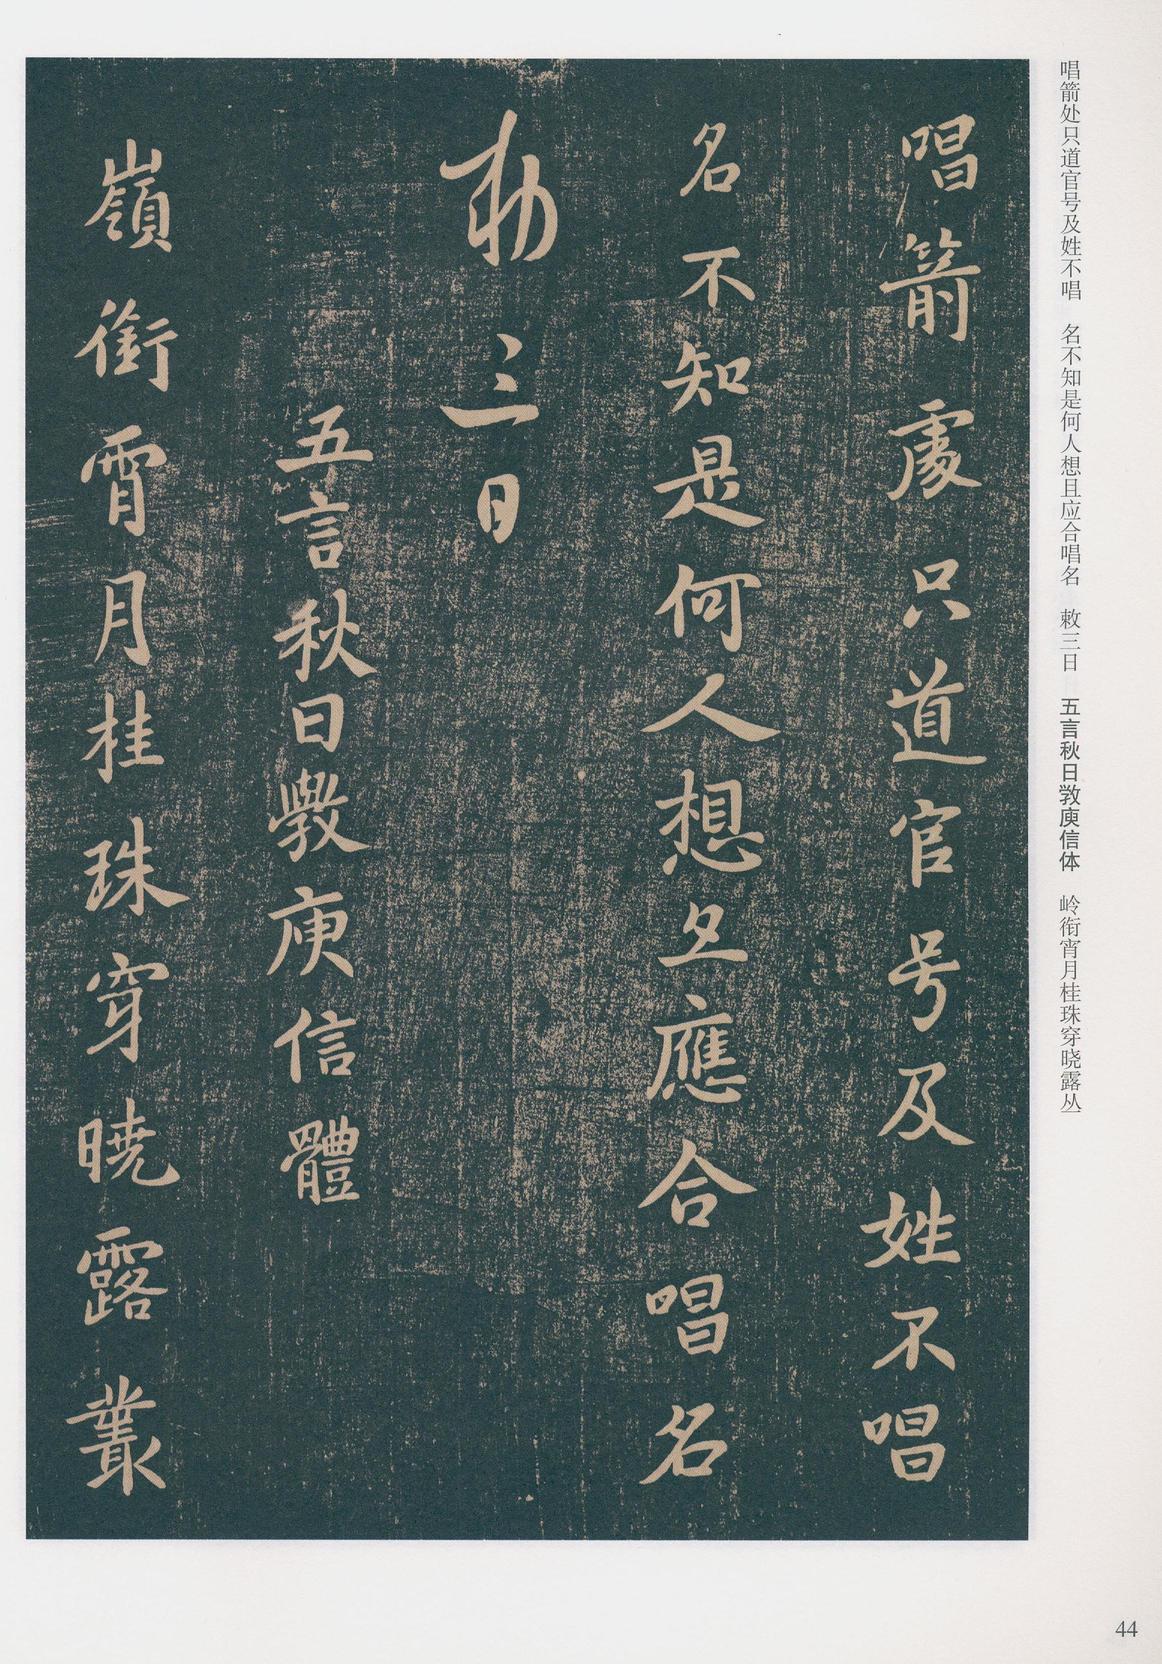 唱箭處只道官号及姓不唱
名不知是何人想且應合唱名
勅三日
五言秋日斆庾信體
嶺銜宵月桂珠穿曉露叢
唱箭处只道官号及姓不唱　名不知是何人想且应合唱名　敕三日　五言秋日敩庾信体　岭衔宵月桂珠穿晓露丛
44